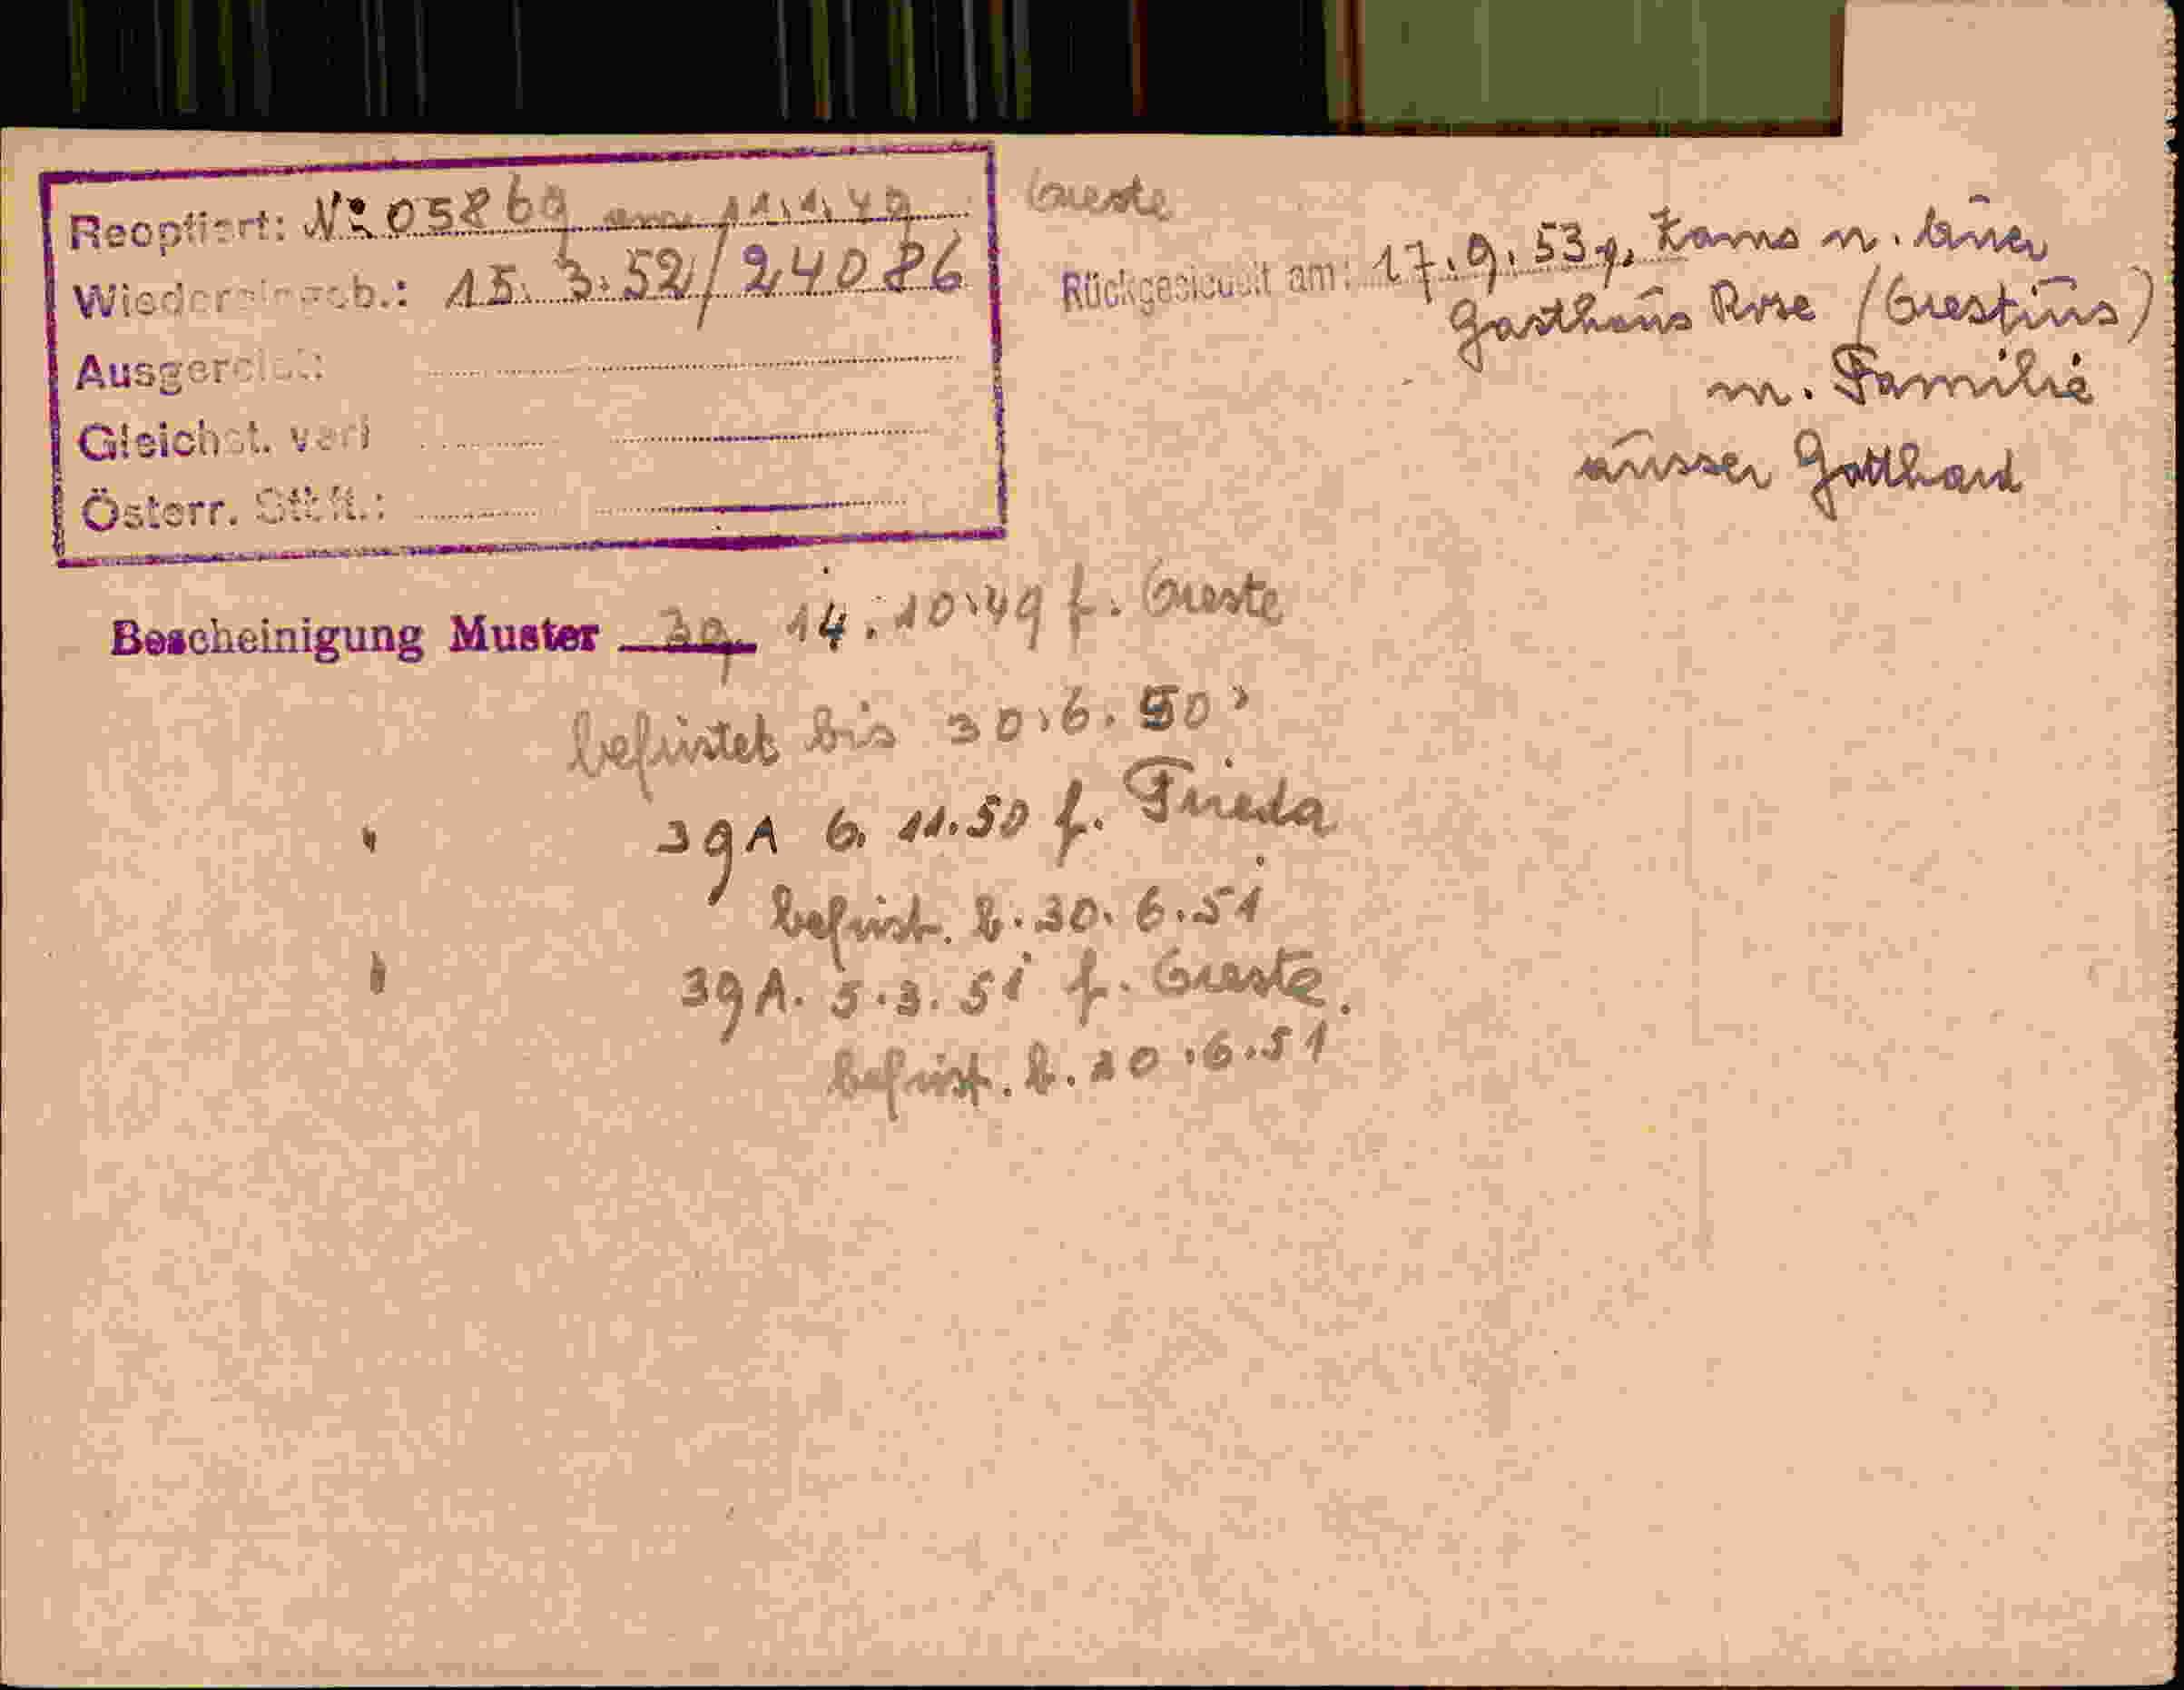 Reoptiert: No 05869 am 11.1.49
Wiedereingeb.: 15.3.52/24086
Ausgereist:
Gleichst. verl
Österr. Stbft.:
Oreste
Rückgesiedelt am: 17.9.53 n.
Gasthaus Rose (Crestins)
m. Familie
ausser Gotthard
Bescheinigung Muster 39 14.10.49 f. Oreste
befristet bis 30.6.50
" 39A 6.11.50 f. Frieda
befrist. b. 30.6.51
" 39A. 5.3.51 f. Oreste.
befrist. b. 30.6.51